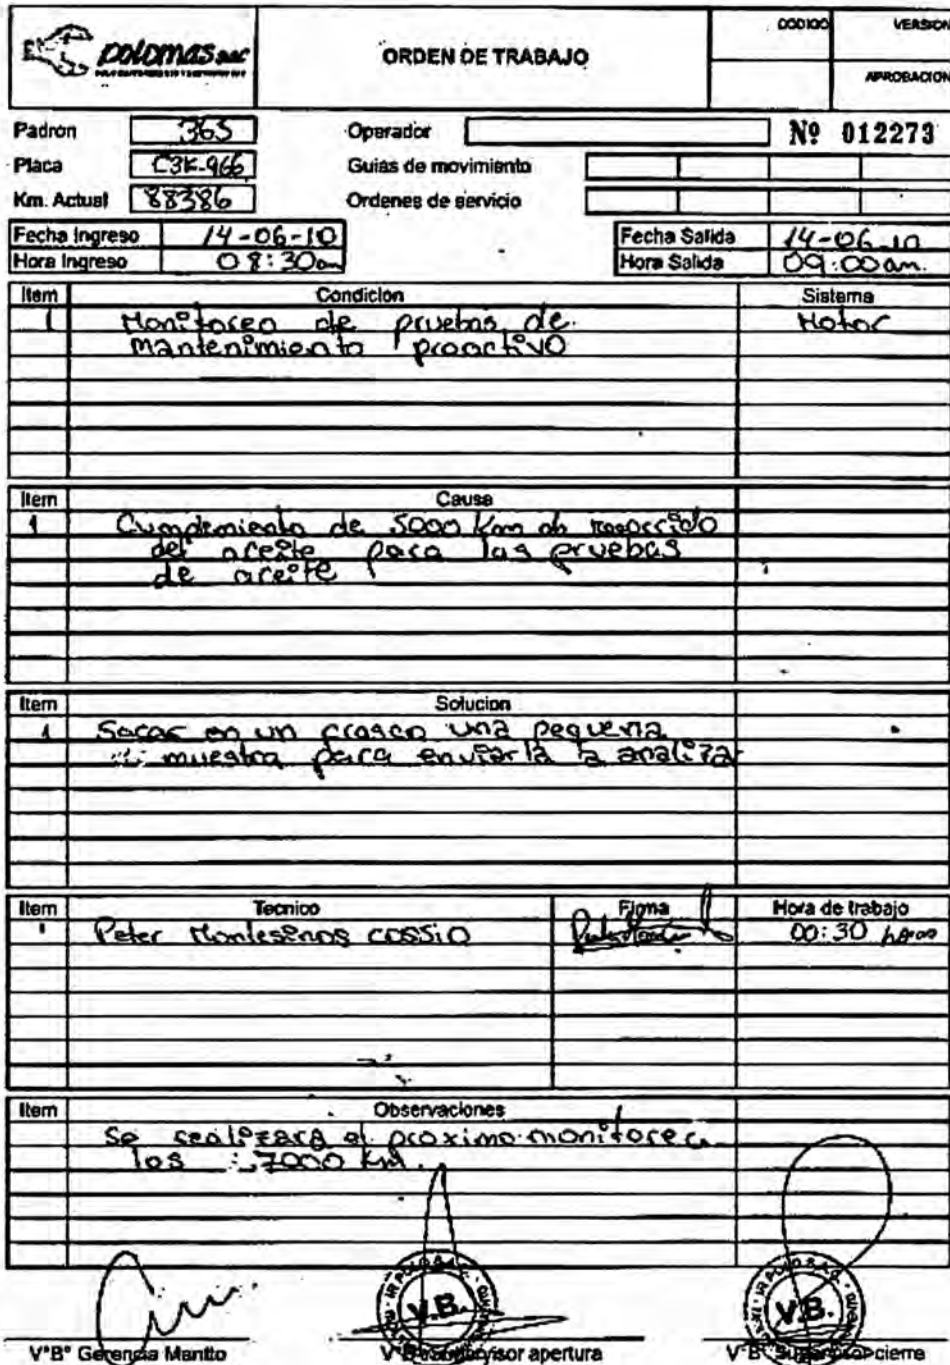 polomas sac
ORDEN DE TRABAJO
CODIGO
VERSION
APROBACION
Padron 365
Operador
Nº 012273
Placa C3K-966
Guias de movimiento
Km. Actual 88386
Ordenes de servicio
Fecha Ingreso 14-06-10
Fecha Salida 14-06-10
Hora Ingreso 08:30am
Hora Salida 09:00am.
Item Condicion Sistema
1 Monitoreo de pruebas de Motor
mantenimiento proactivo
Item Causa
1 Cumplemiento de 5000 Km de recorrido
del aceite para las pruebas
de aceite
Item Solucion
1 Sacar en un frasco una pequeña
muestra para enviarla a analizar
Item Tecnico Firma Hora de trabajo
1 Peter Montesinos Cossio 00:30 horas
Item Observaciones
Se realizara el proximo monitoreo
los 7000 Km.
V.B.
V.B.
V°B° Gerencia Mantto
V°B° Supervisor apertura
V°B° Supervisor cierre